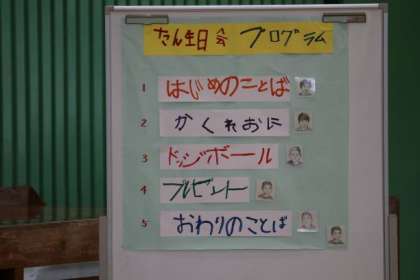 たん生日会 プログラム
1 はじめのことば
2 かくれおに
3 ドッジボール
4 プレゼント
5 おわりのことば